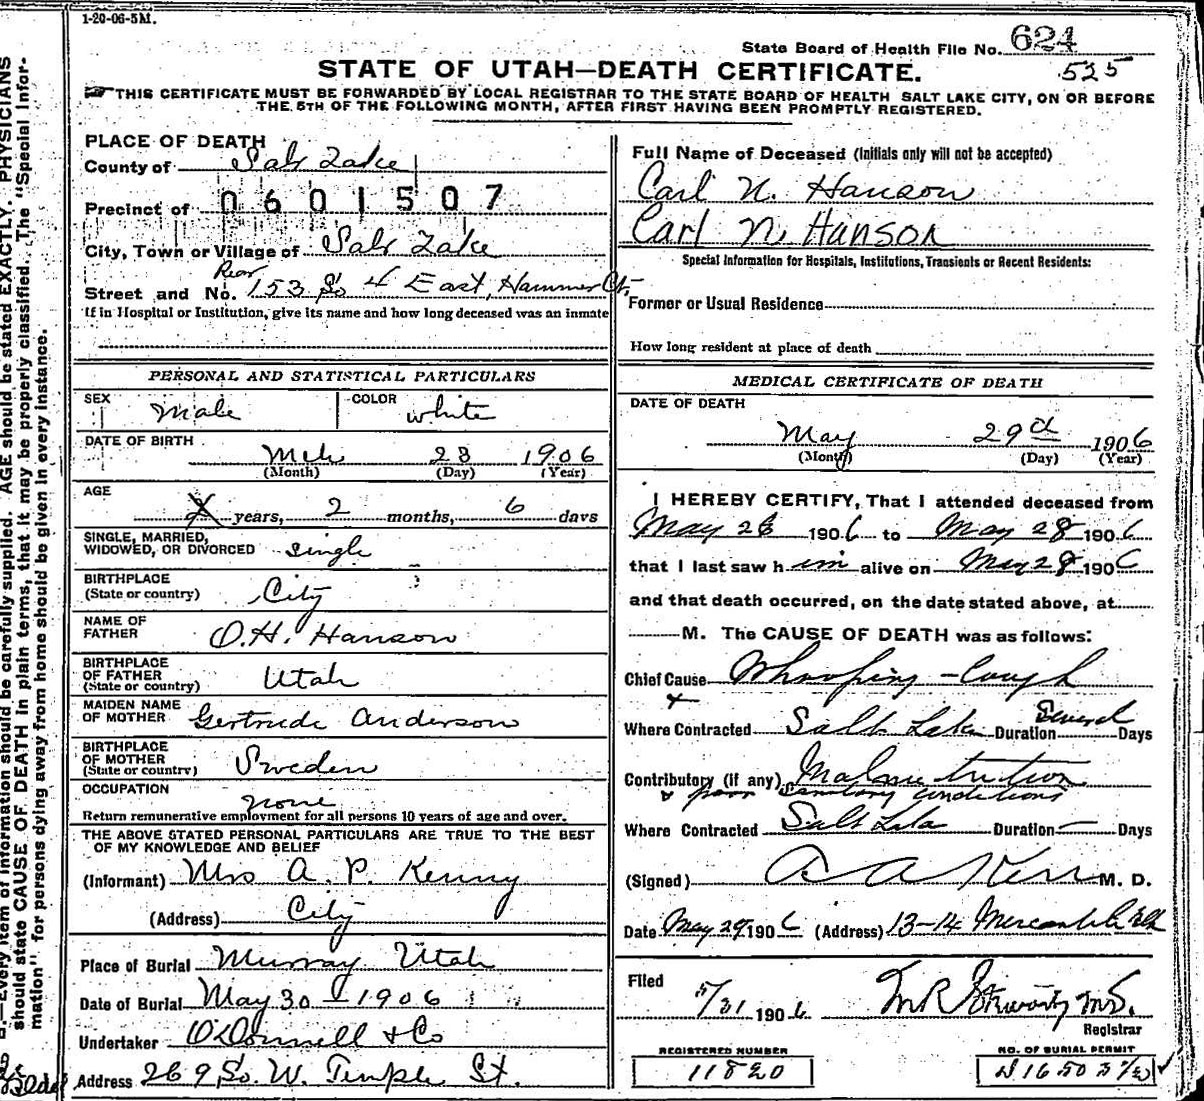 1-20-06-5M.
State Board of Health File No. 624
525
STATE OF UTAH—DEATH CERTIFICATE.
THIS CERTIFICATE MUST BE FORWARDED BY LOCAL REGISTRAR TO THE STATE BOARD OF HEALTH SALT LAKE CITY, ON OR BEFORE
THE 5TH OF THE FOLLOWING MONTH, AFTER FIRST HAVING BEEN PROMPTLY REGISTERED.
PLACE OF DEATH
County of Salt Lake
Precinct of 0601507
City, Town or Village of Salt Lake
Rear
Street and No. 153 So 4 East, Hammer Ct,
If in Hospital or Institution, give its name and how long deceased was an inmate
PERSONAL AND STATISTICAL PARTICULARS
SEX Male COLOR white
DATE OF BIRTH Mch 23 1906
(Month) (Day) (Year)
AGE years, 2 months, 6 days
SINGLE, MARRIED,
WIDOWED, OR DIVORCED single
BIRTHPLACE
(State or country) City
NAME OF
FATHER O.H. Hanson
BIRTHPLACE
OF FATHER
(State or country) Utah
MAIDEN NAME
OF MOTHER Gertrude Anderson
BIRTHPLACE
OF MOTHER
(State or country) Sweden
OCCUPATION none
Return remunerative employment for all persons 10 years of age and over.
THE ABOVE STATED PERSONAL PARTICULARS ARE TRUE TO THE BEST
OF MY KNOWLEDGE AND BELIEF
(Informant) Mrs A. P. Kenny
(Address) City
Place of Burial Murray Utah
Date of Burial May 30 1906
Undertaker O'Donnell & Co
Address 269 So. W. Temple St.
Full Name of Deceased (Initials only will not be accepted)
Carl N. Hanson
Carl N. Hanson
Special Information for Hospitals, Institutions, Transients or Recent Residents:
Former or Usual Residence
How long resident at place of death
MEDICAL CERTIFICATE OF DEATH
DATE OF DEATH
May 29th 1906
(Month) (Day) (Year)
I HEREBY CERTIFY, That I attended deceased from
May 26 1906 to May 28 1906
that I last saw him alive on May 28 1906
and that death occurred, on the date stated above, at
M. The CAUSE OF DEATH was as follows:
Chief Cause Whooping-Cough
Where Contracted Salt Lake Duration Several Days
Contributory (if any) Malnutrition
& poor sanitary conditions
Where Contracted Salt Lake Duration — Days
(Signed) A A Kerr M. D.
Date May 29 1906 (Address) 13-14 Mercantile Blk
Filed
5/31 1906
Registrar
REGISTERED NUMBER
11820
NO. OF BURIAL PERMIT
.—Every item of information should be carefully supplied. AGE should be stated EXACTLY. PHYSICIANS
should state CAUSE OF DEATH in plain terms, that it may be properly classified. The "Special Infor-
mation" for persons dying away from home should be given in every instance.